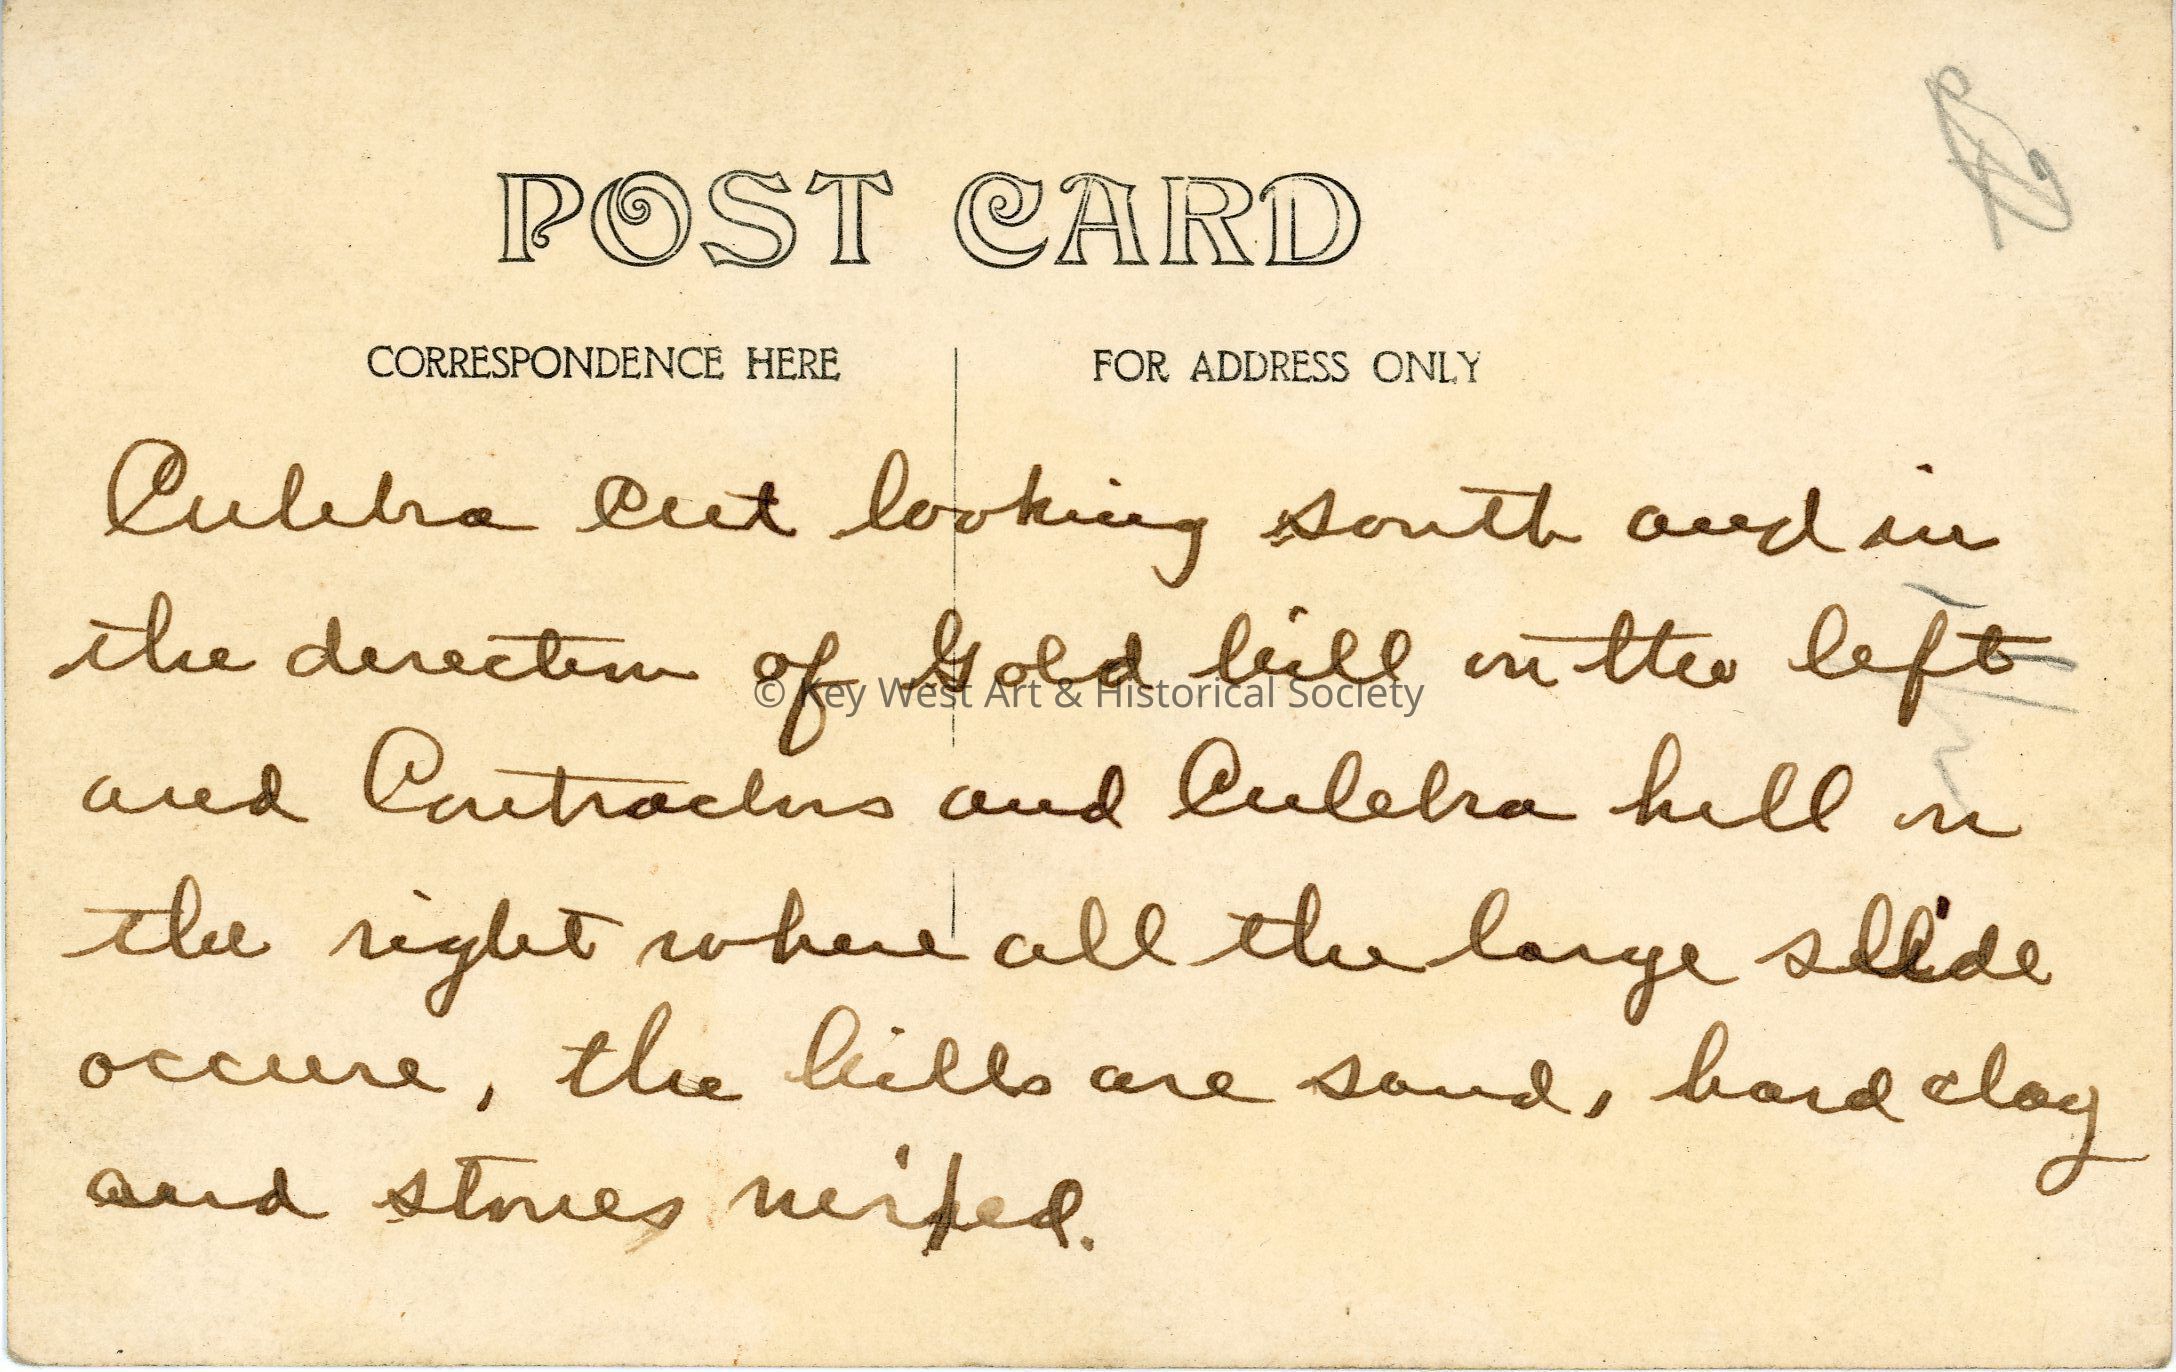 POST CARD
CORRESPONDENCE HERE
FOR ADDRESS ONLY
Culebra Cut looking south and in
the direction of Gold hill on the left
© Key West Art & Historical Society
and Contractors and Culebra hill on
the right where all the large slide
occure, the hills are sand, hard clay
and stones mixed.